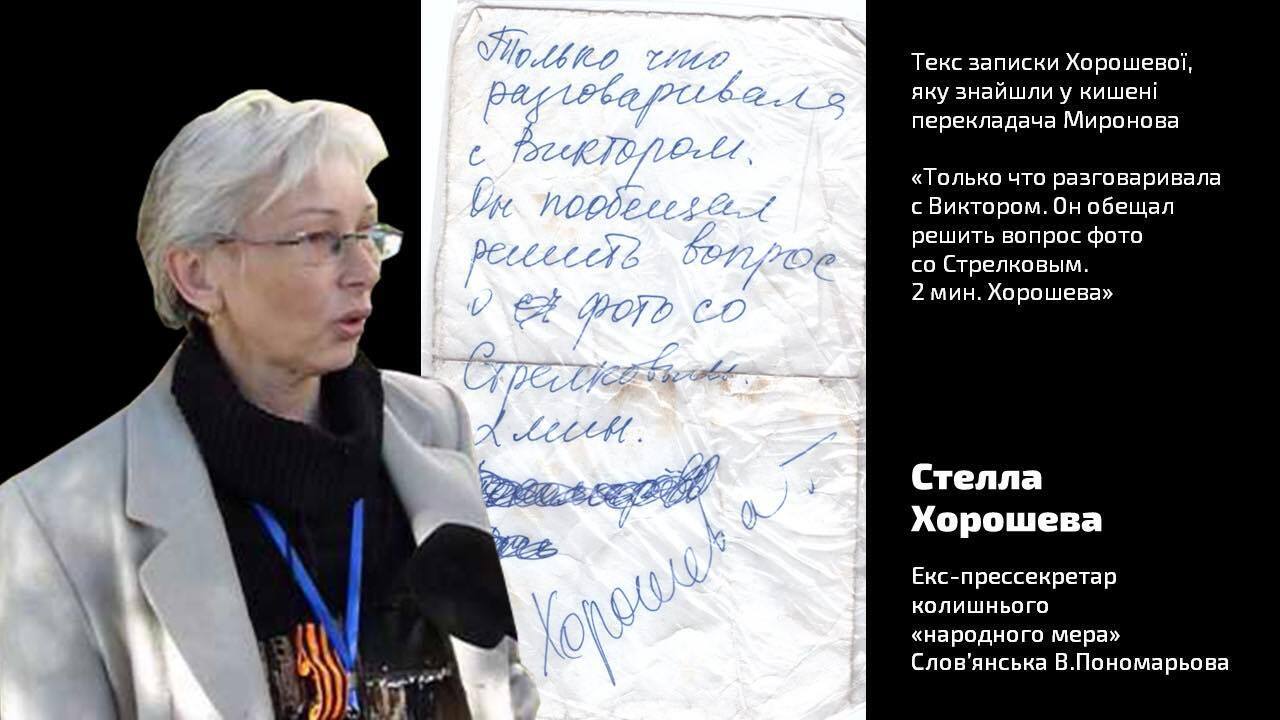 Только что
разговаривала
с Виктором.
Он пообещал
решить вопрос
о фото со
Стрелковым.
2 мин.
Хорошева
Текс записки Хорошевої,
яку знайшли у кишені
перекладача Миронова
«Только что разговаривала
с Виктором. Он обещал
решить вопрос фото
со Стрелковым.
2 мин. Хорошева»
Стелла
Хорошева
Екс-прессекретар
колишнього
«народного мера»
Слов’янська В.Пономарьова